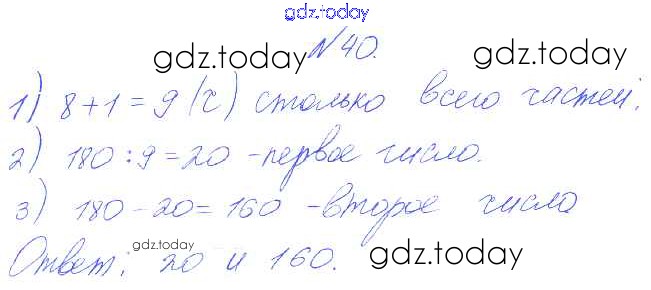 gdz.today
№40.
gdz.today gdz.today
1) 8+1=9 (ч) столько всего частей.
2) 180:9=20 -первое число.
3) 180-20=160 -второе число
gdz.today gdz.today
Ответ: 20 и 160.